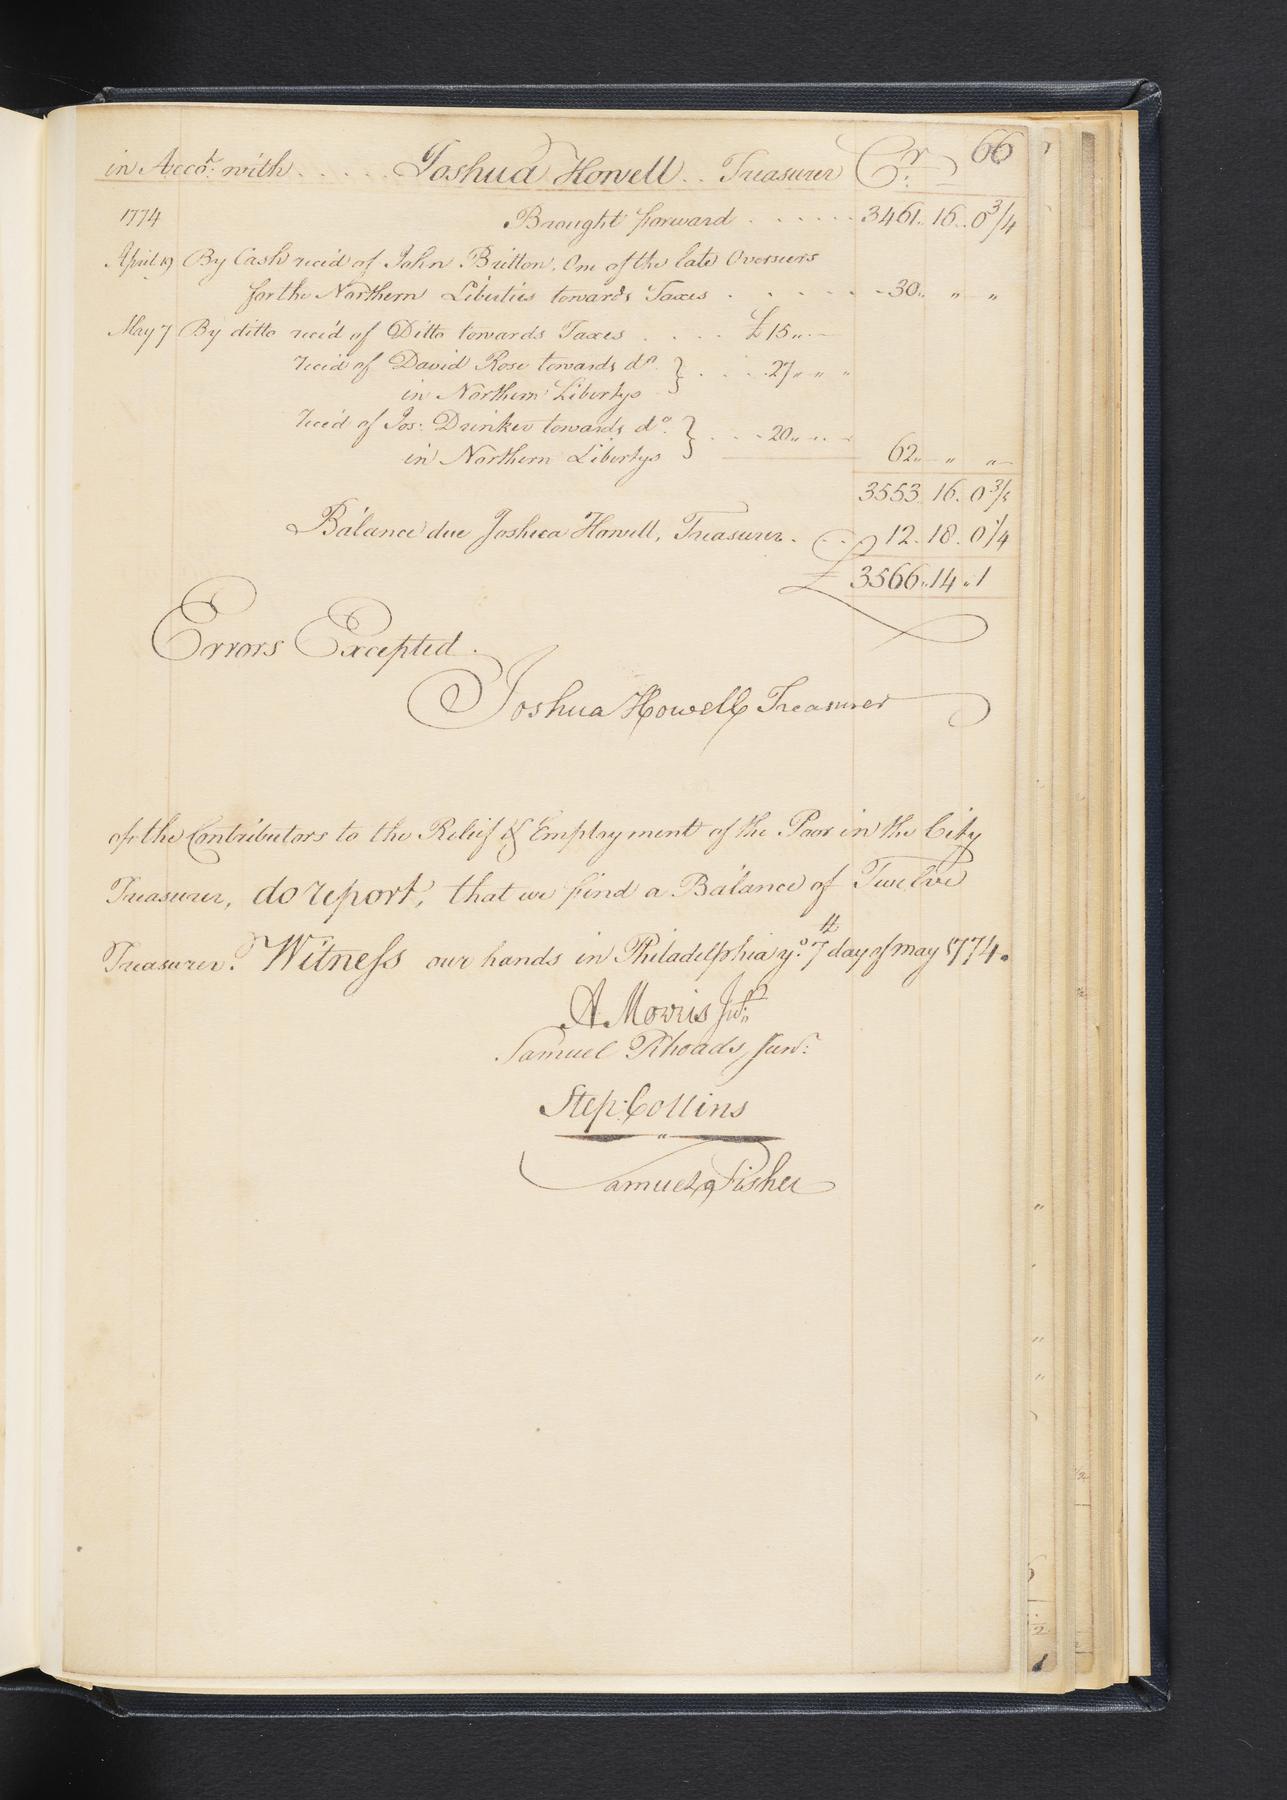 66
in Acco.t with . . . . . Joshua Howell . . Treasurer Cr.
1774 Brought forward . . . . . . 3461 .. 16 .. 0 3/4
April 19 By Cash reced of John Britton, One of the late Overseers
for the Northern Liberties towards Taxes . . . . . 30 .. " "
May 7 By ditto reced of Ditto towards Taxes . . . . £15 .. -
reced of David Rose towards do. } . . . 27 " " "
in Northern Libertys
reced of Jos: Drinker towards do. } . . . 20 " .. -
in Northern Libertys 62 .. " "
3553 . 16 . 0 3/4
Balance due Joshua Howell, Treasurer . . . 12 . 18 . 0 1/4
£ 3566 .. 14 .. 1
Errors Excepted.
Joshua Howell Treasurer
of the Contributors to the Relief & Employment of the Poor in the City
Treasurer, do report, that we find a Balance of Twelve
Treasurer. Witness our hands in Philadelphia ye. 7th day of May 1774.
A Morris Junr.
Samuel Rhoads, Junr.
Step: Collins
Samuel Fisher